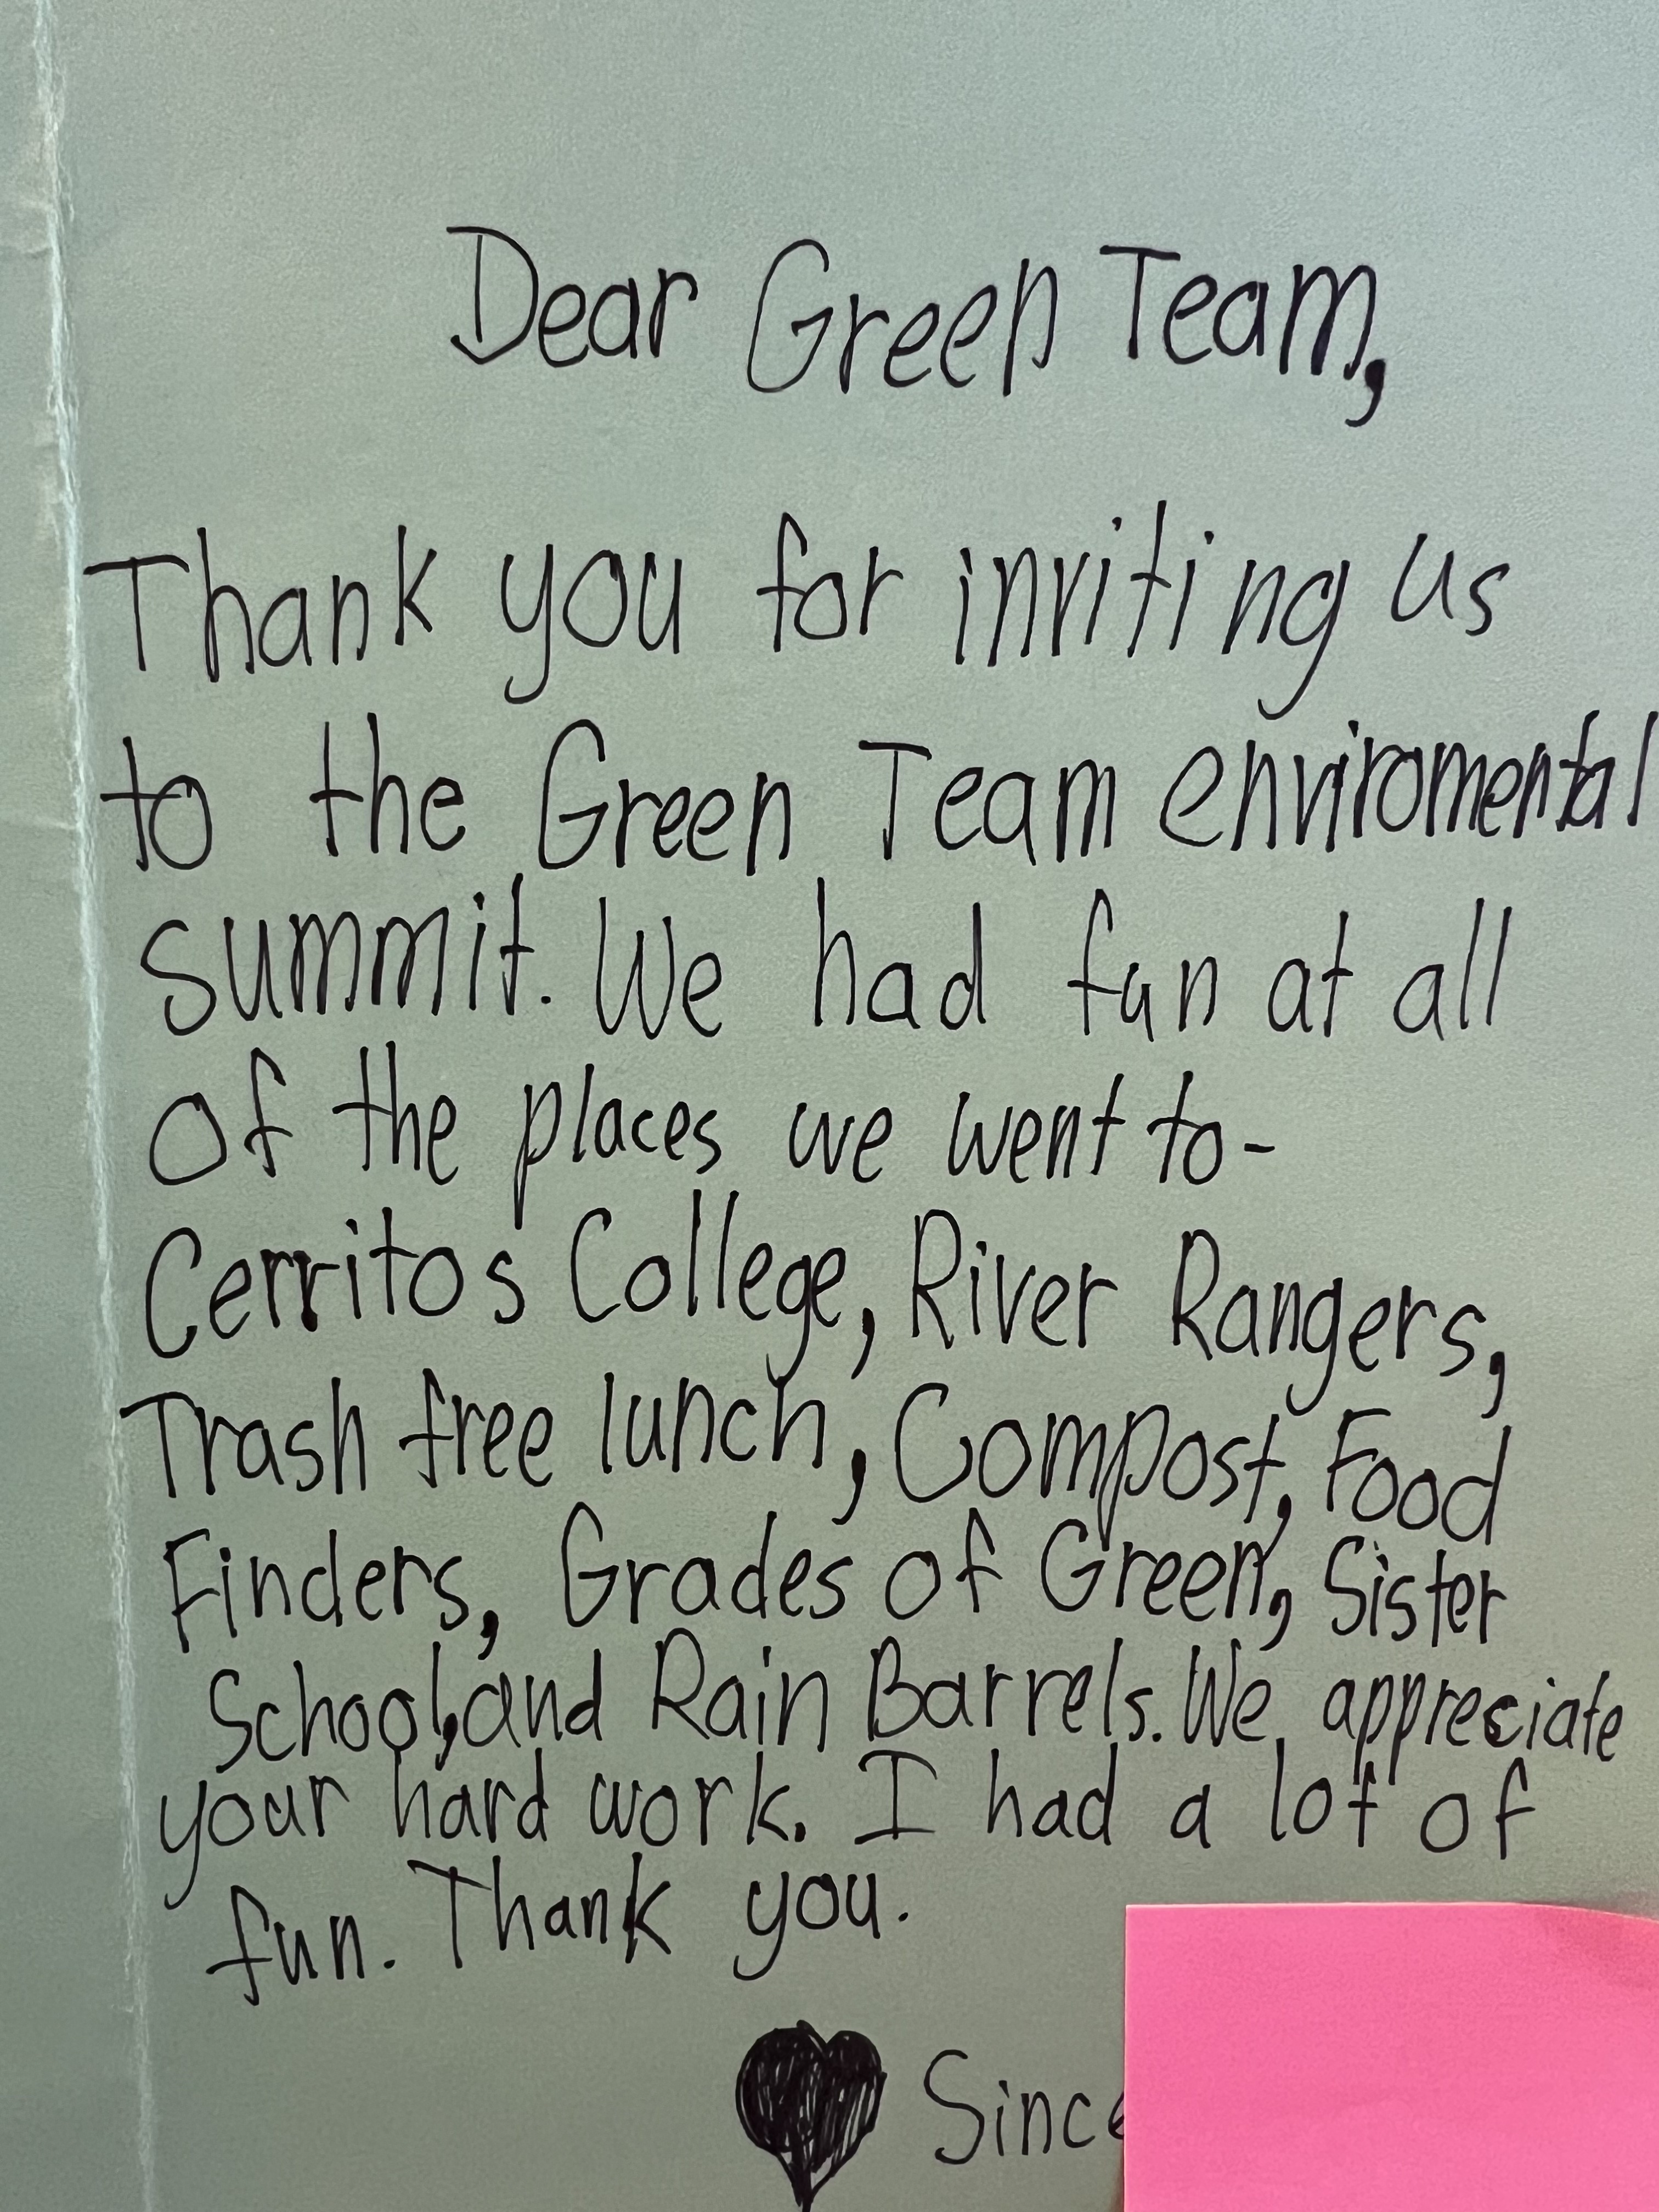 Dear Green Team,
Thank you for inviting us
to the Green Team enviromental
summit. We had fun at all
of the places we went to-
Cerritos College, River Rangers,
Trash free lunch, Compost, Food
Finders, Grades of Green, Sister
School, and Rain Barrels. We appreciate
your hard work. I had a lot of
fun. Thank you.
Since